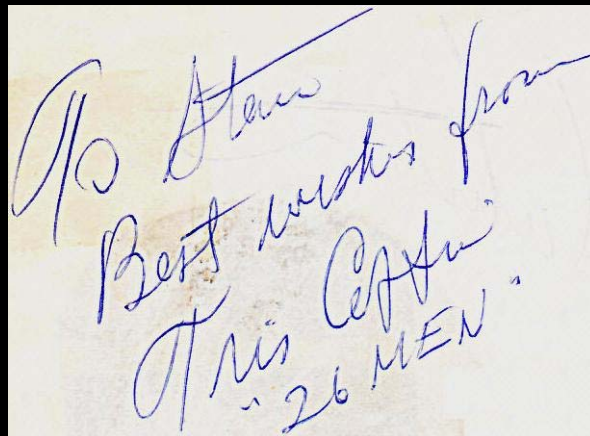 To Steve
Best wishes from
Tris Coffin
"26 MEN"